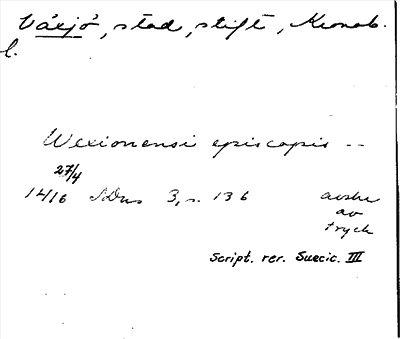 Växjö, stad, stift, Kronob.
l.
Wexionensi episcopis --
27/4
1416 SDns 3, s. 136 avskr
av
tryck
Script. rer. Suecic. III